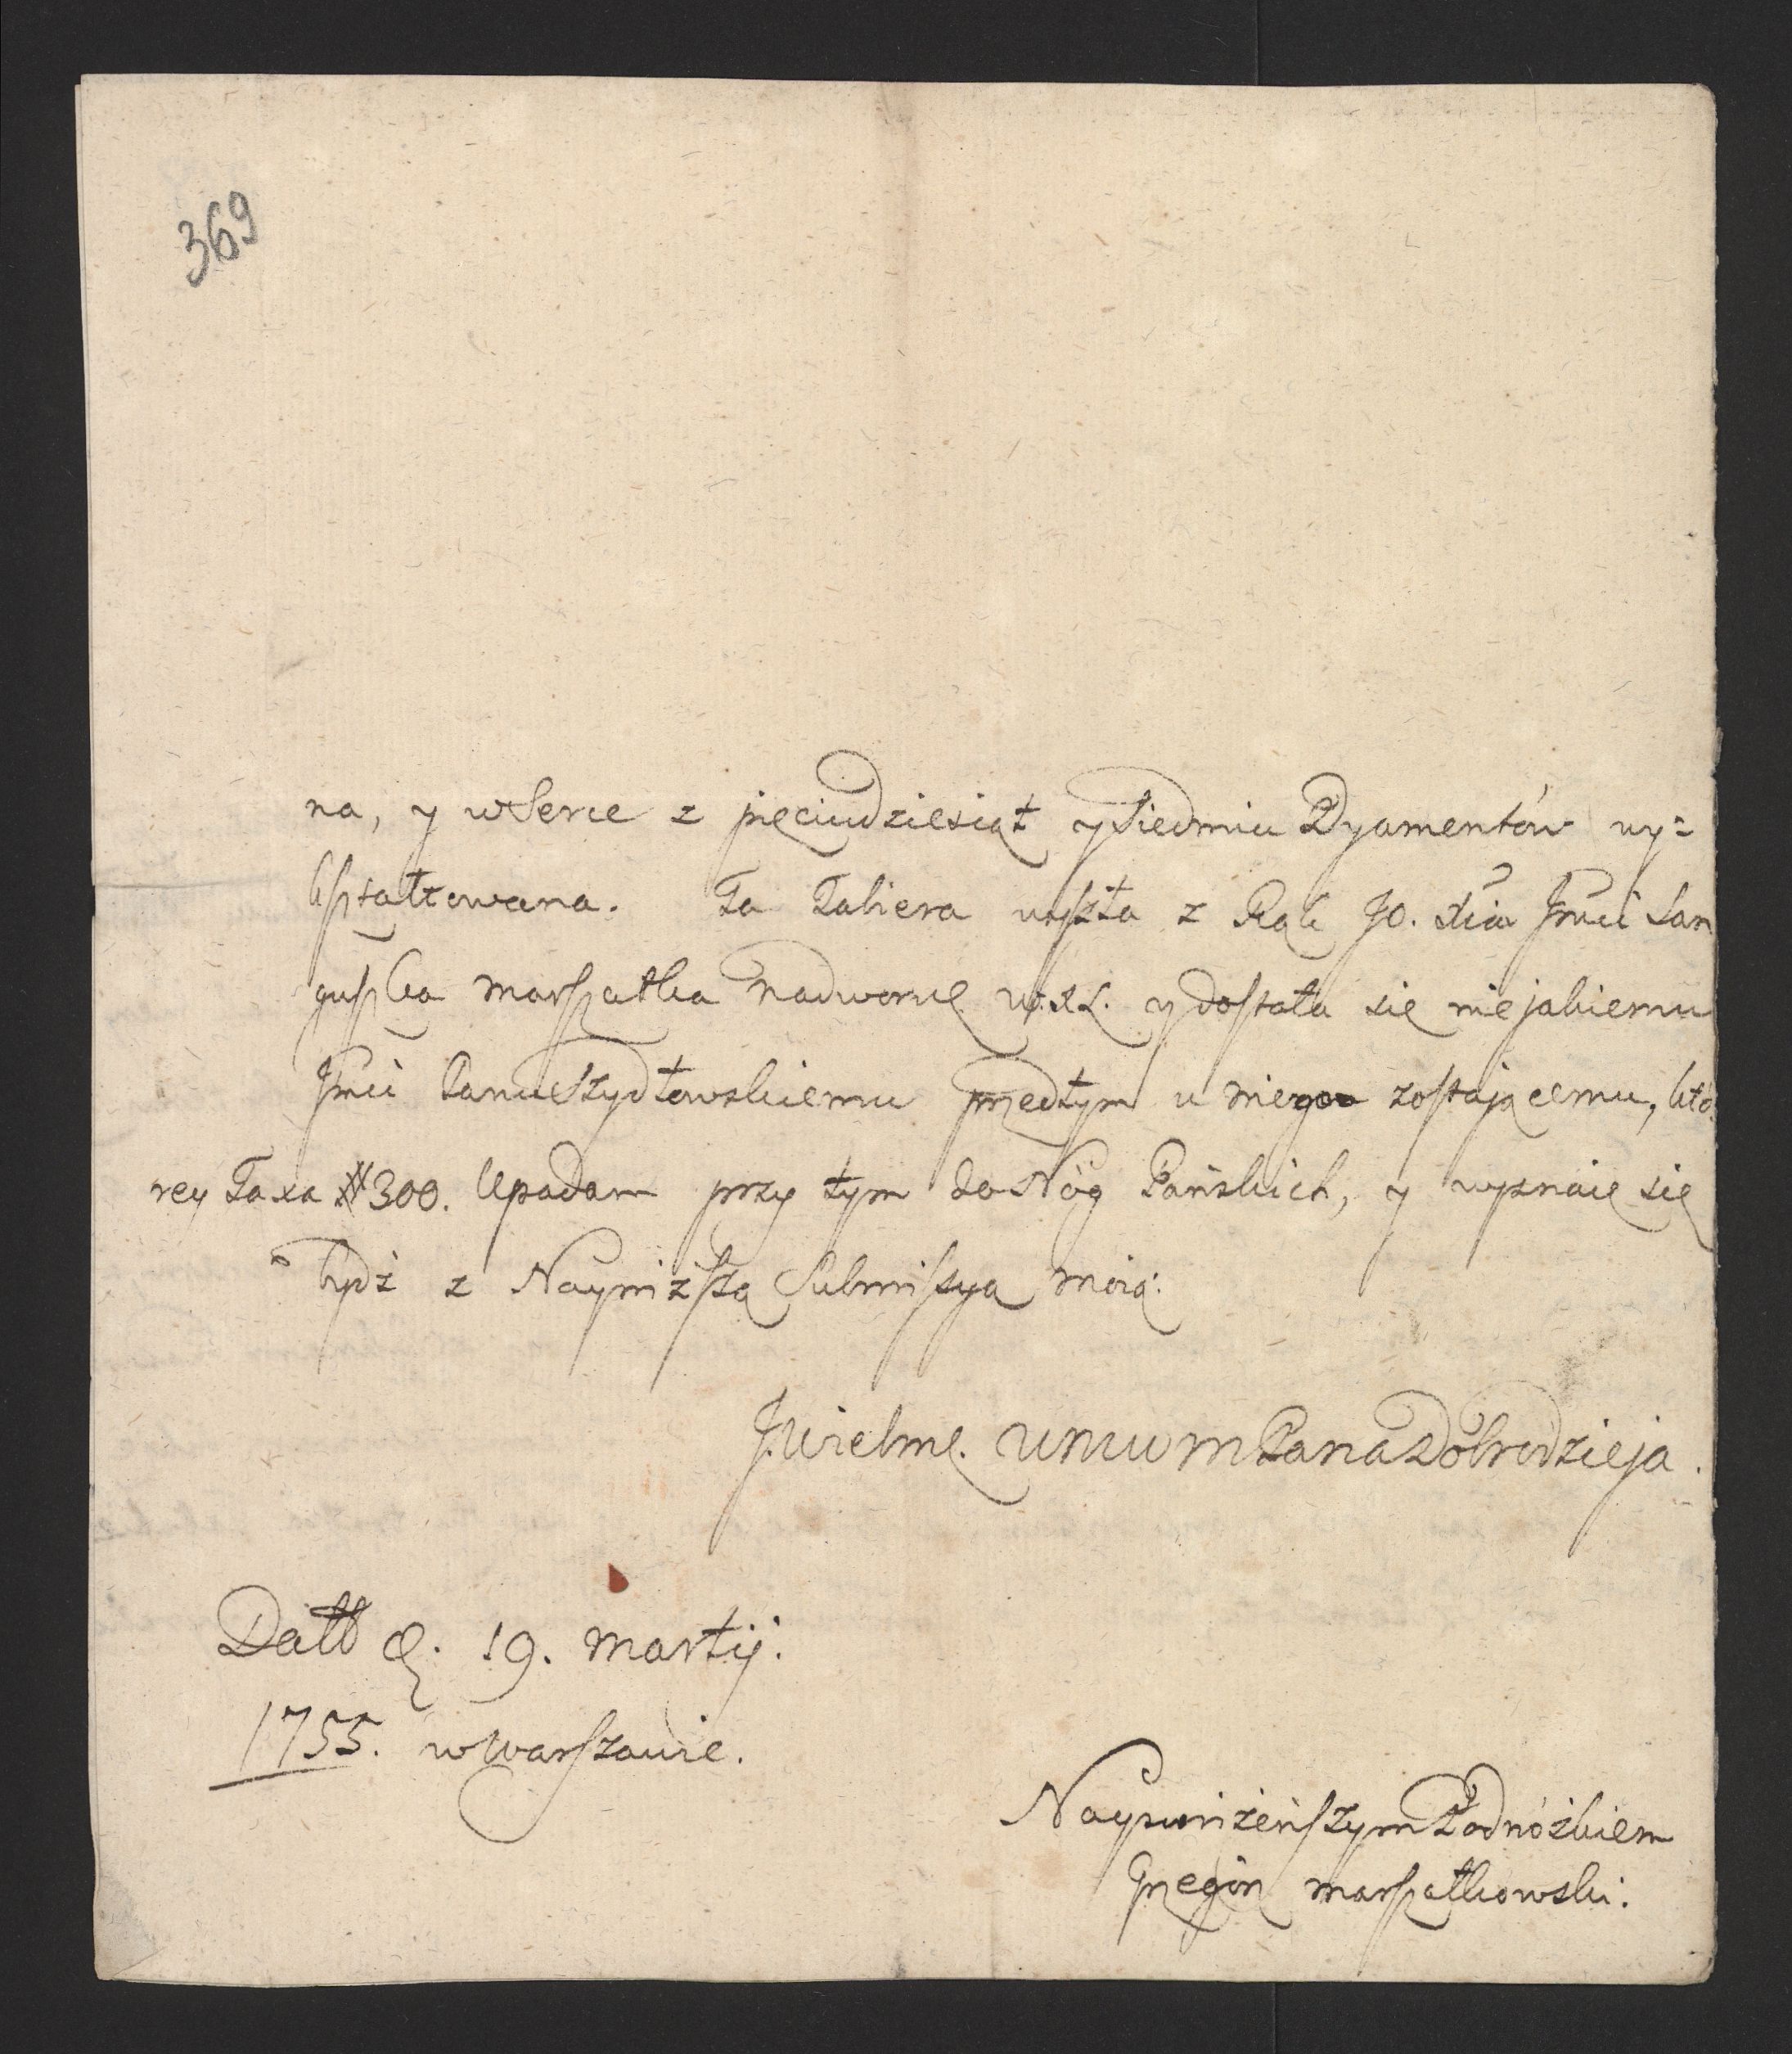 369
na, y w Serce z pięciudziesiąt y Siedmiu Dyamentów wy=
kształtowana. Ta Tabiera wyszła z Rąk JO. Xcia Jmci San
guszka Marszałka Nadwornę W.X.L. y dostała się niejakiemu
Jmci Panu Szydłowskiemu przedtym u niego zostającemu, któ=
rey Taxa # 300. Upadam przy tym do Nóg Pańskich, y wyznaię się
bydź z Nayniższą Submissyą moią.
JWielmę. WMWMPana Dobrodzieja.
Datt d. 19. Martij.
1755. w Warszawie.
Nayuniżeńszym Podnóżkiem
Grzegórz Marszałkowski.